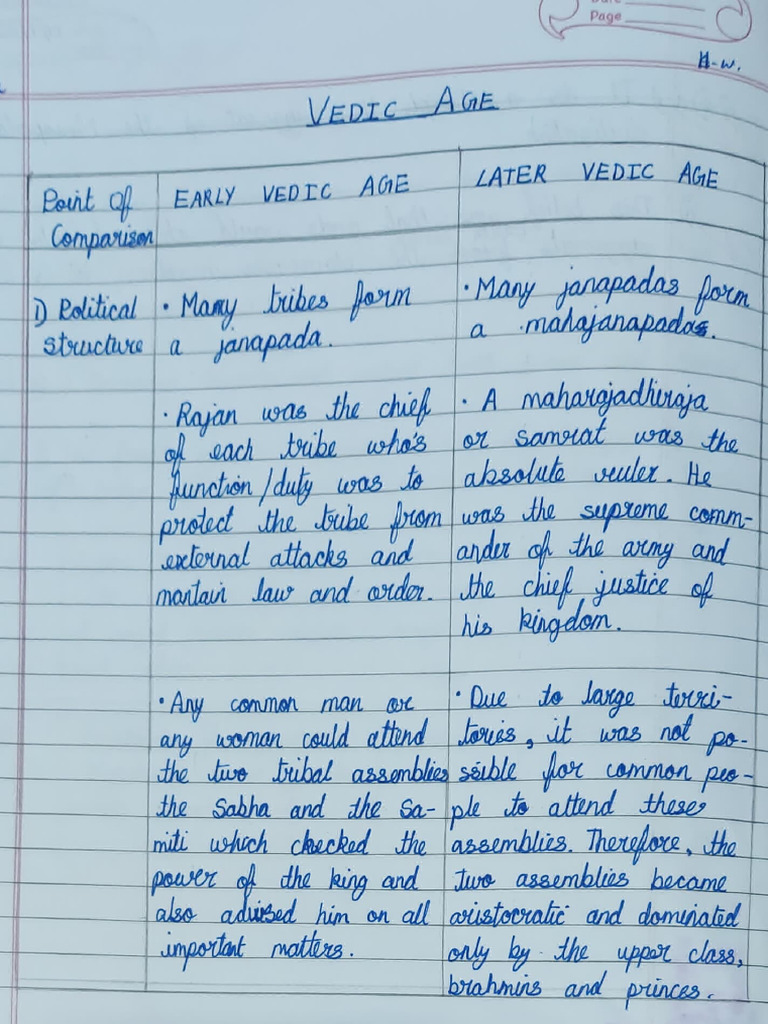 Page
H-w.
VEDIC AGE
Point Of
Comparison
EARLY VEDIC AGE
LATER VEDIC AGE
1) Political
structure
• Many tribes form
a janapada.
• Many janapadas form
a mahajanapadas.
• Rajan was the chief
of each tribe who's
function/duty was to
protect the tribe from
external attacks and
mantain law and order.
• A maharajadhiraja
or samrat was the
absolute ruler. He
was the supreme comm-
ander of the army and
the chief justice of
his kingdom.
• Any common man or
any woman could attend
the two tribal assemblies
the Sabha and the Sa-
miti which checked the
power of the king and
also advised him on all
important matters.
• Due to large terri-
tories, it was not po-
ssible for common peo-
ple to attend these
assemblies. Therefore, the
two assemblies became
aristocratic and dominated
only by the upper class,
brahmins and princes.